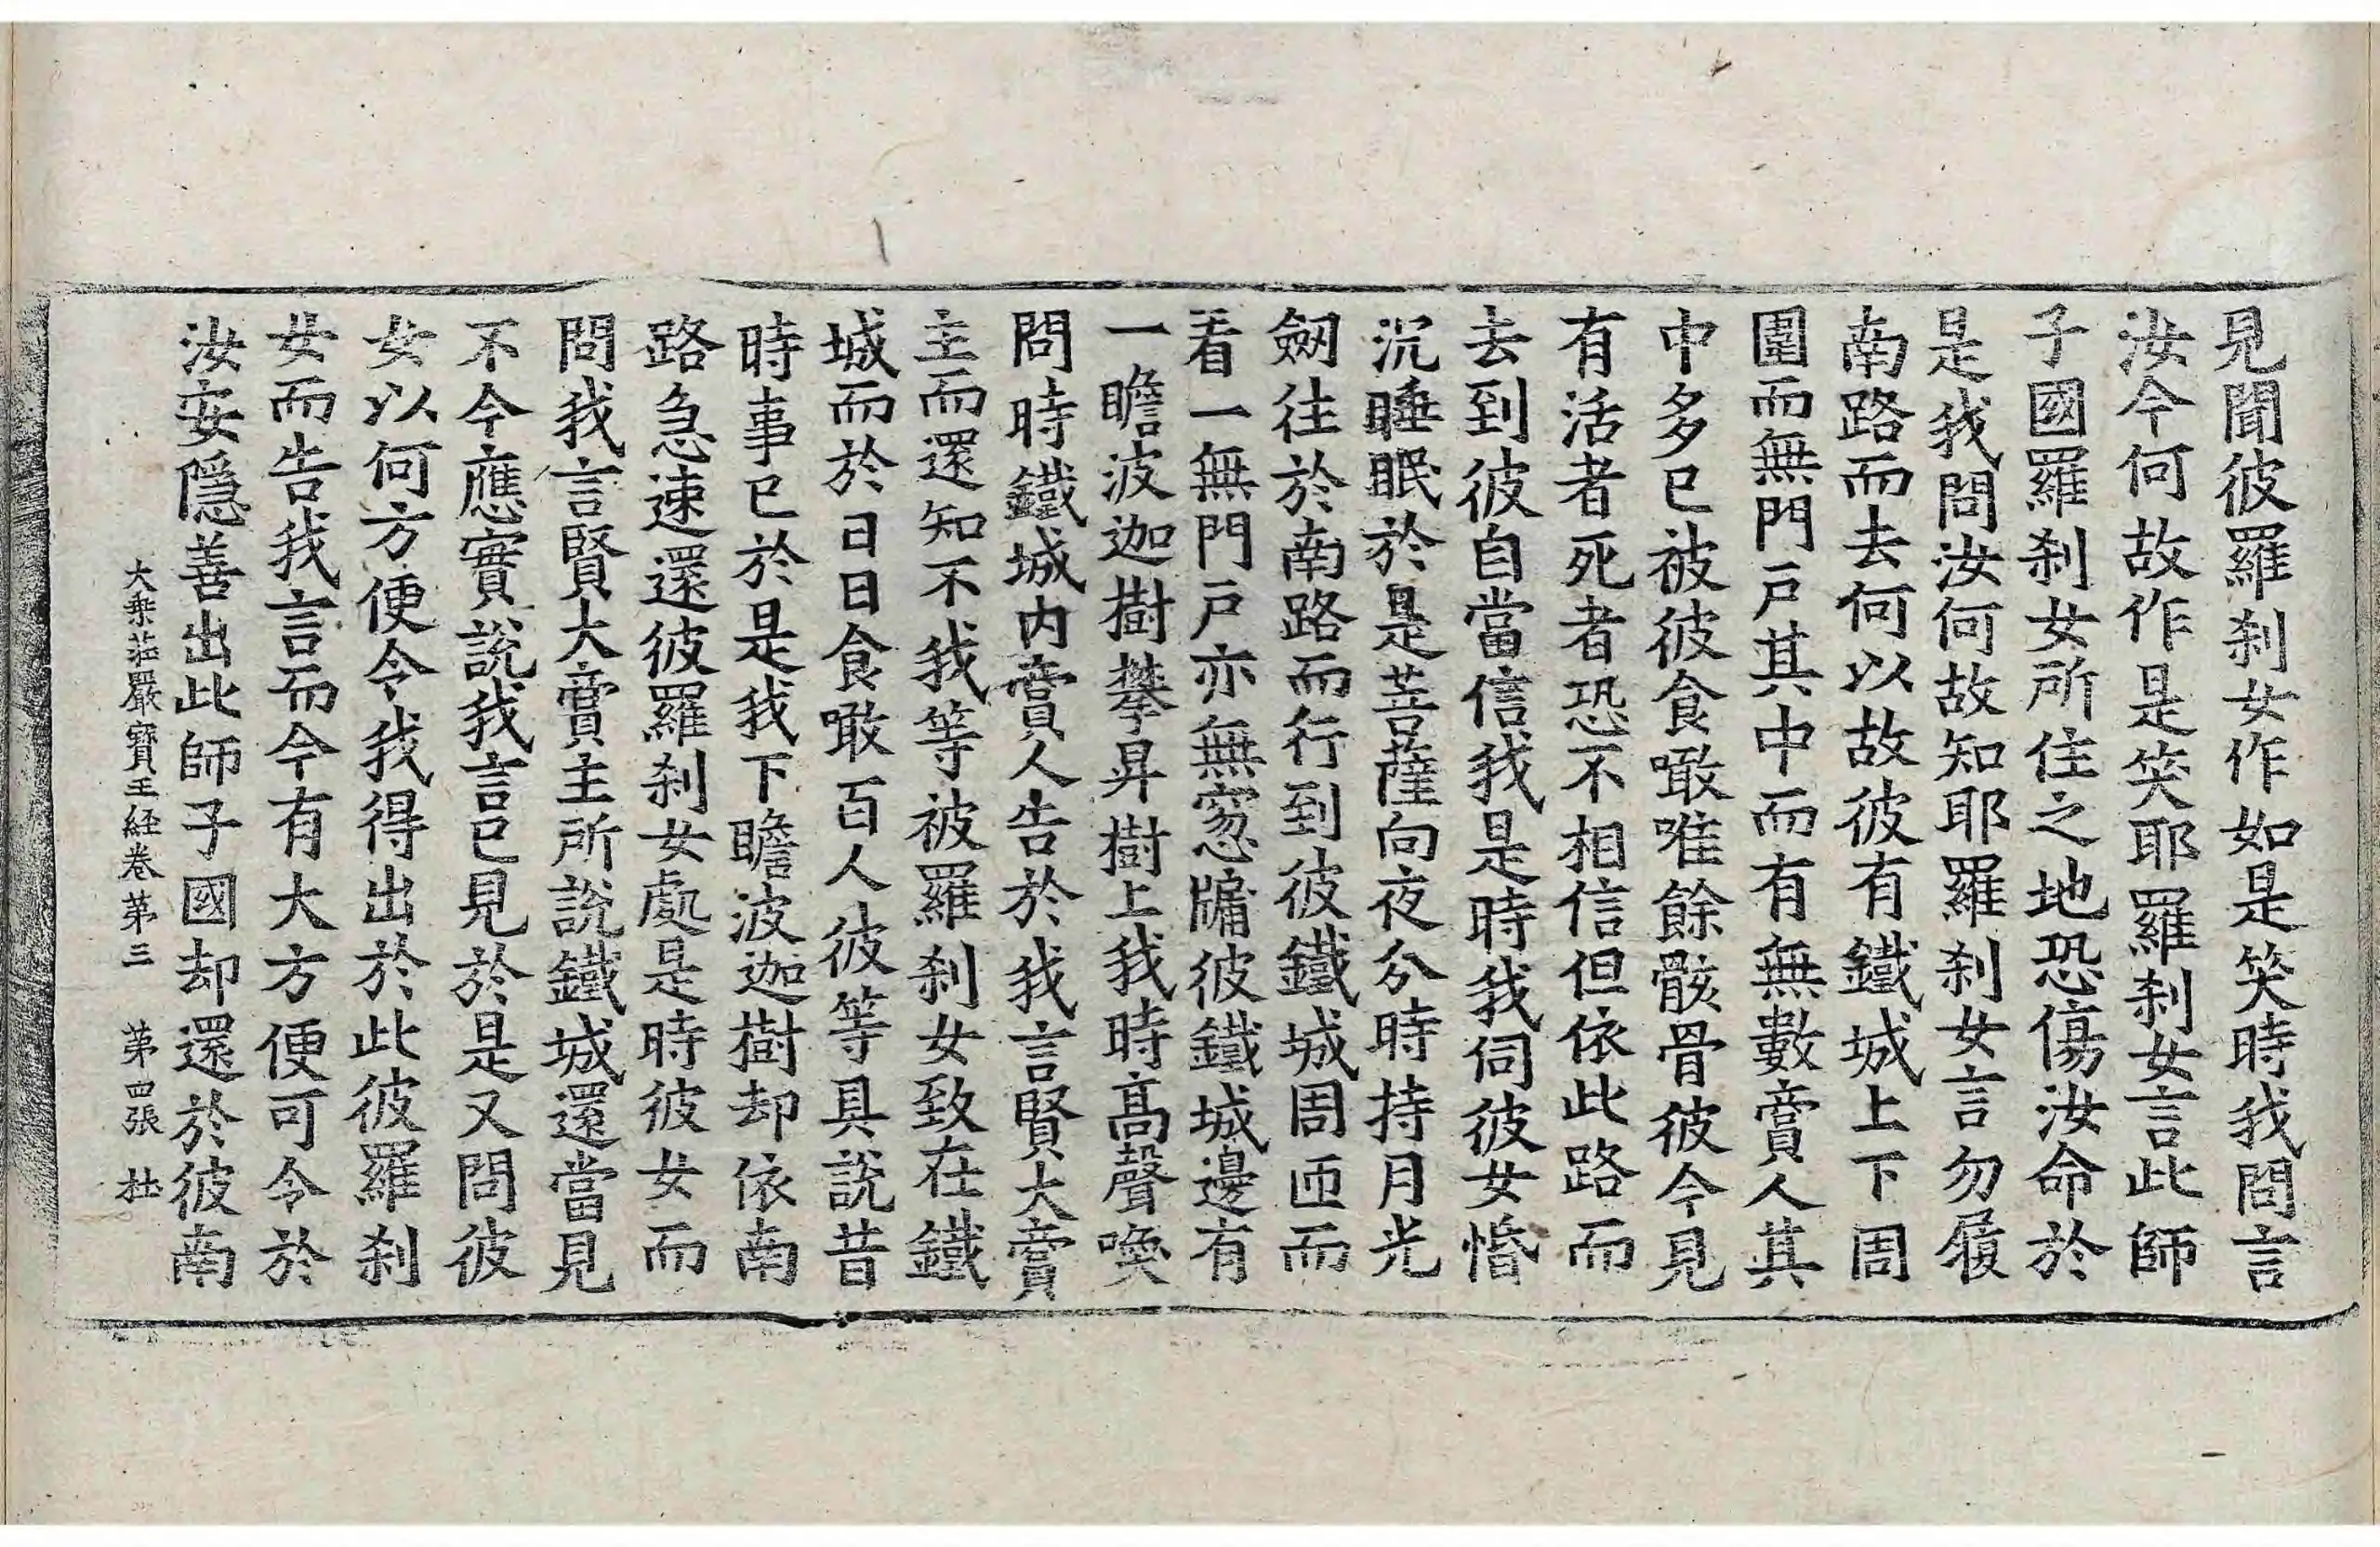 見聞彼羅刹女作如是笑時我問言
汝今何故作是笑耶羅刹女言此師
子國羅刹女所住之地恐傷汝命於
是我問汝何故知耶羅刹女言勿履
南路而去何以故彼有鐵城上下周
圍而無門戶其中而有無數賣人其
中多已被彼食噉唯餘骸骨彼今見
有活者死者恐不相信但依此路而
去到彼自當信我是時我伺彼女惛
沉睡眠於是菩薩向夜分時持月光
劒往於南路而行到彼鐵城周匝而
看一無門戶亦無窓牗彼鐵城邊有
一瞻波迦樹攀昇樹上我時高聲喚
問時鐵城内賣人告於我言賢大賣
主而還知不我等被羅刹女致在鐵
城而於日日食噉百人彼等具說昔
時事已於是我下瞻波迦樹却依南
路急速還彼羅刹女處是時彼女而
問我言賢大賣主所說鐵城還當見
不今應實說我言已見於是又問彼
女以何方便令我得出於此彼羅刹
女而告我言而今有大方便可令於
汝安隱善出此師子國却還於彼南
大乗莊嚴寶王経卷第三 第四張 杜